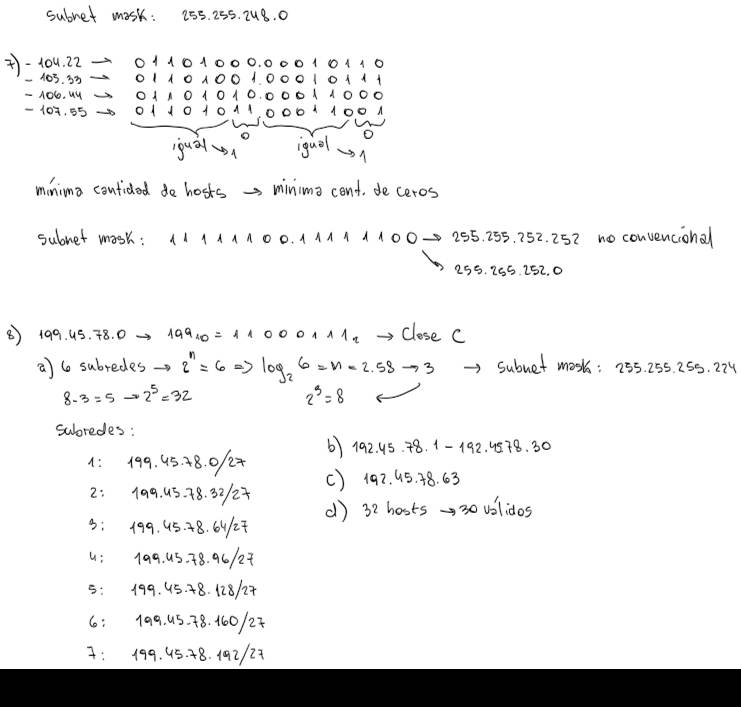 subnet mask: 255.255.248.0
7) - 104.22 → 0 1 1 0 1 0 0 0.0 0 0 1 0 1 1 0
- 105.33 → 0 1 1 0 1 0 0 1.0 0 0 1 0 1 1 1
- 106.44 → 0 1 1 0 1 0 1 0.0 0 0 1 1 0 0 0
- 107.55 → 0 1 1 0 1 0 1 1.0 0 0 1 1 0 0 1
igual → 1 0 igual → 1 0
mínima cantidad de hosts → mínima cant. de ceros
subnet mask: 1 1 1 1 1 1 0 0.1 1 1 1 1 1 0 0 → 255.255.252.252 no convencional
→ 255.255.252.0
8) 199.45.78.0 → 199₁₀ = 1 1 0 0 0 1 1 1₂ → Clase C
a) 6 subredes → 2ⁿ = 6 => log₂ 6 = n = 2.58 → 3 → subnet mask: 255.255.255.224
8-3 = 5 → 2⁵ = 32 2³ = 8 ←
Subredes:
1: 199.45.78.0/27
2: 199.45.78.32/27
3: 199.45.78.64/27
4: 199.45.78.96/27
5: 199.45.78.128/27
6: 199.45.78.160/27
7: 199.45.78.192/27
b) 192.45.78.1 - 192.4578.30
c) 192.45.78.63
d) 32 hosts → 30 válidos